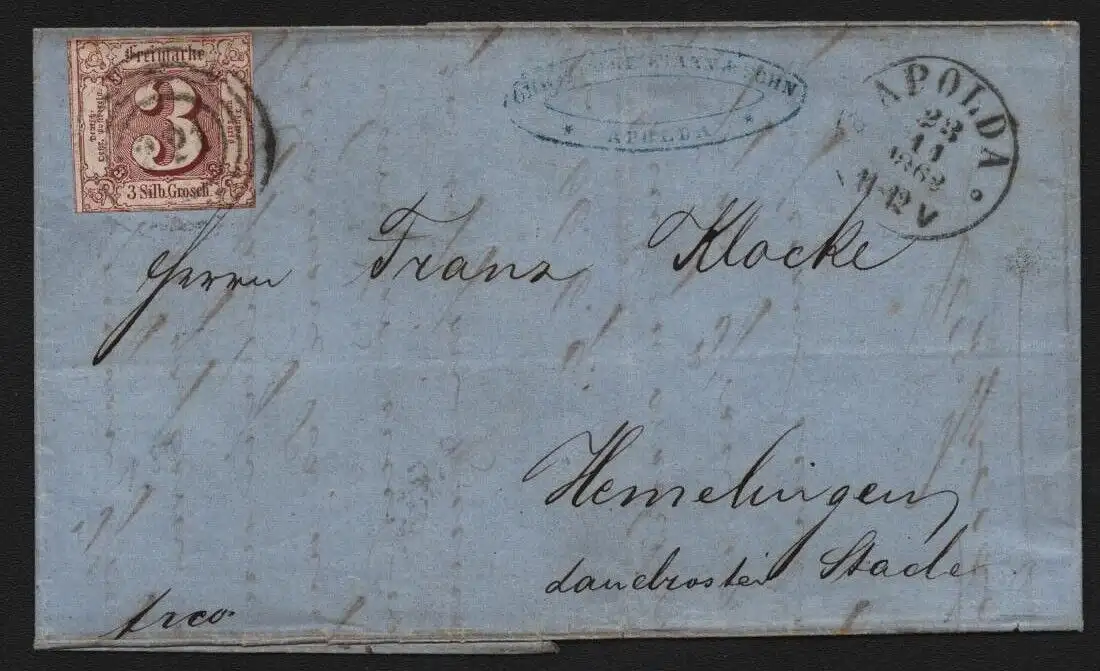 Freimarke
3
3 Silb. Grosch.
& SOHN
* APOLDA *
APOLDA
23
11
1862
11-12 V
Herrn Franz Klocke
Hemelingen
Landrostei Stade
frco.